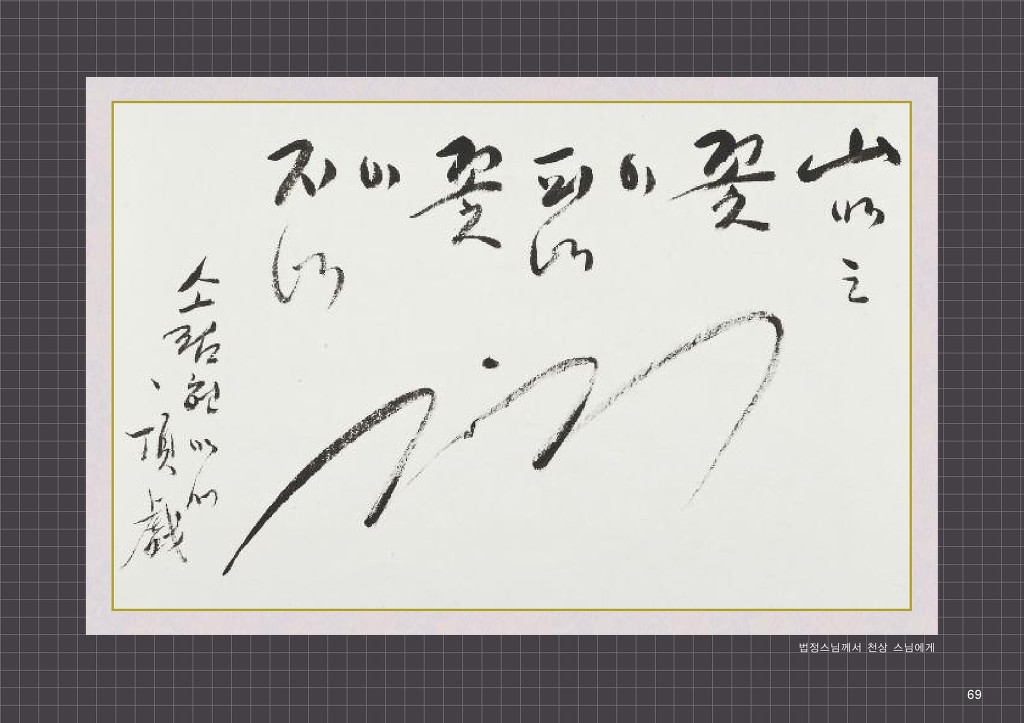 山에는
꽃
이
피네
꽃
이
지네
頂 戱
법정스님께서 천상 스님에게
69